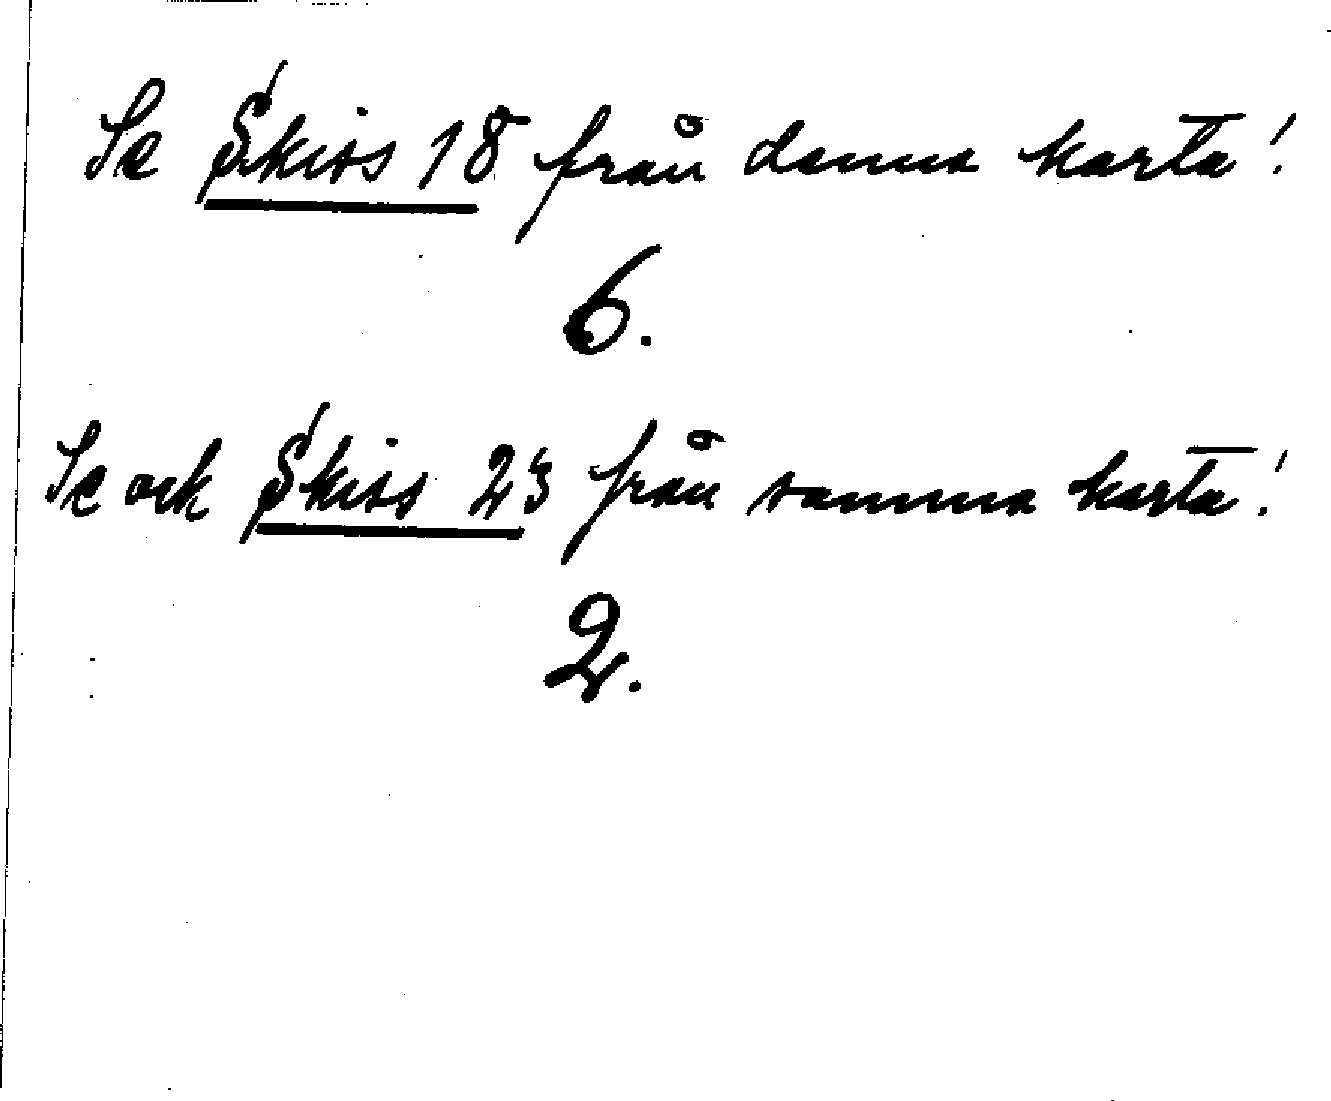 Se Skiss 18 från denna karta!
6.
Se ock Skiss 23 från samma karta!
2.